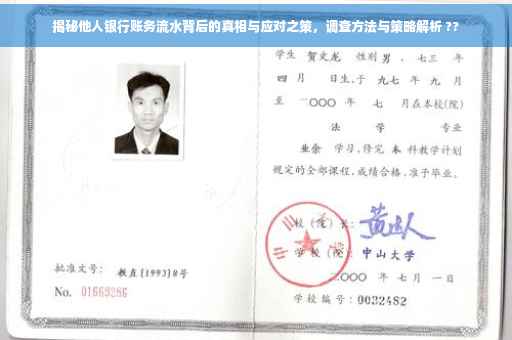 揭秘他人银行账务流水背后的真相与应对之策，调查方法与策略解析??
学生 贺文龙 性别男，七三 年
四 月 日生，于 九七 年 九 月
至 二〇〇〇 年 七 月在本校(院)
法 学 专业
业余 学习，修完 本 科教学计划
规定的全部课程，成绩合格，准予毕业。
校(院)长：
学校(院)： 中山大学
二〇〇〇 年 七 月 一 日
学校编号：0032482
批准文号： 教直[1993]8号
No. 01669286